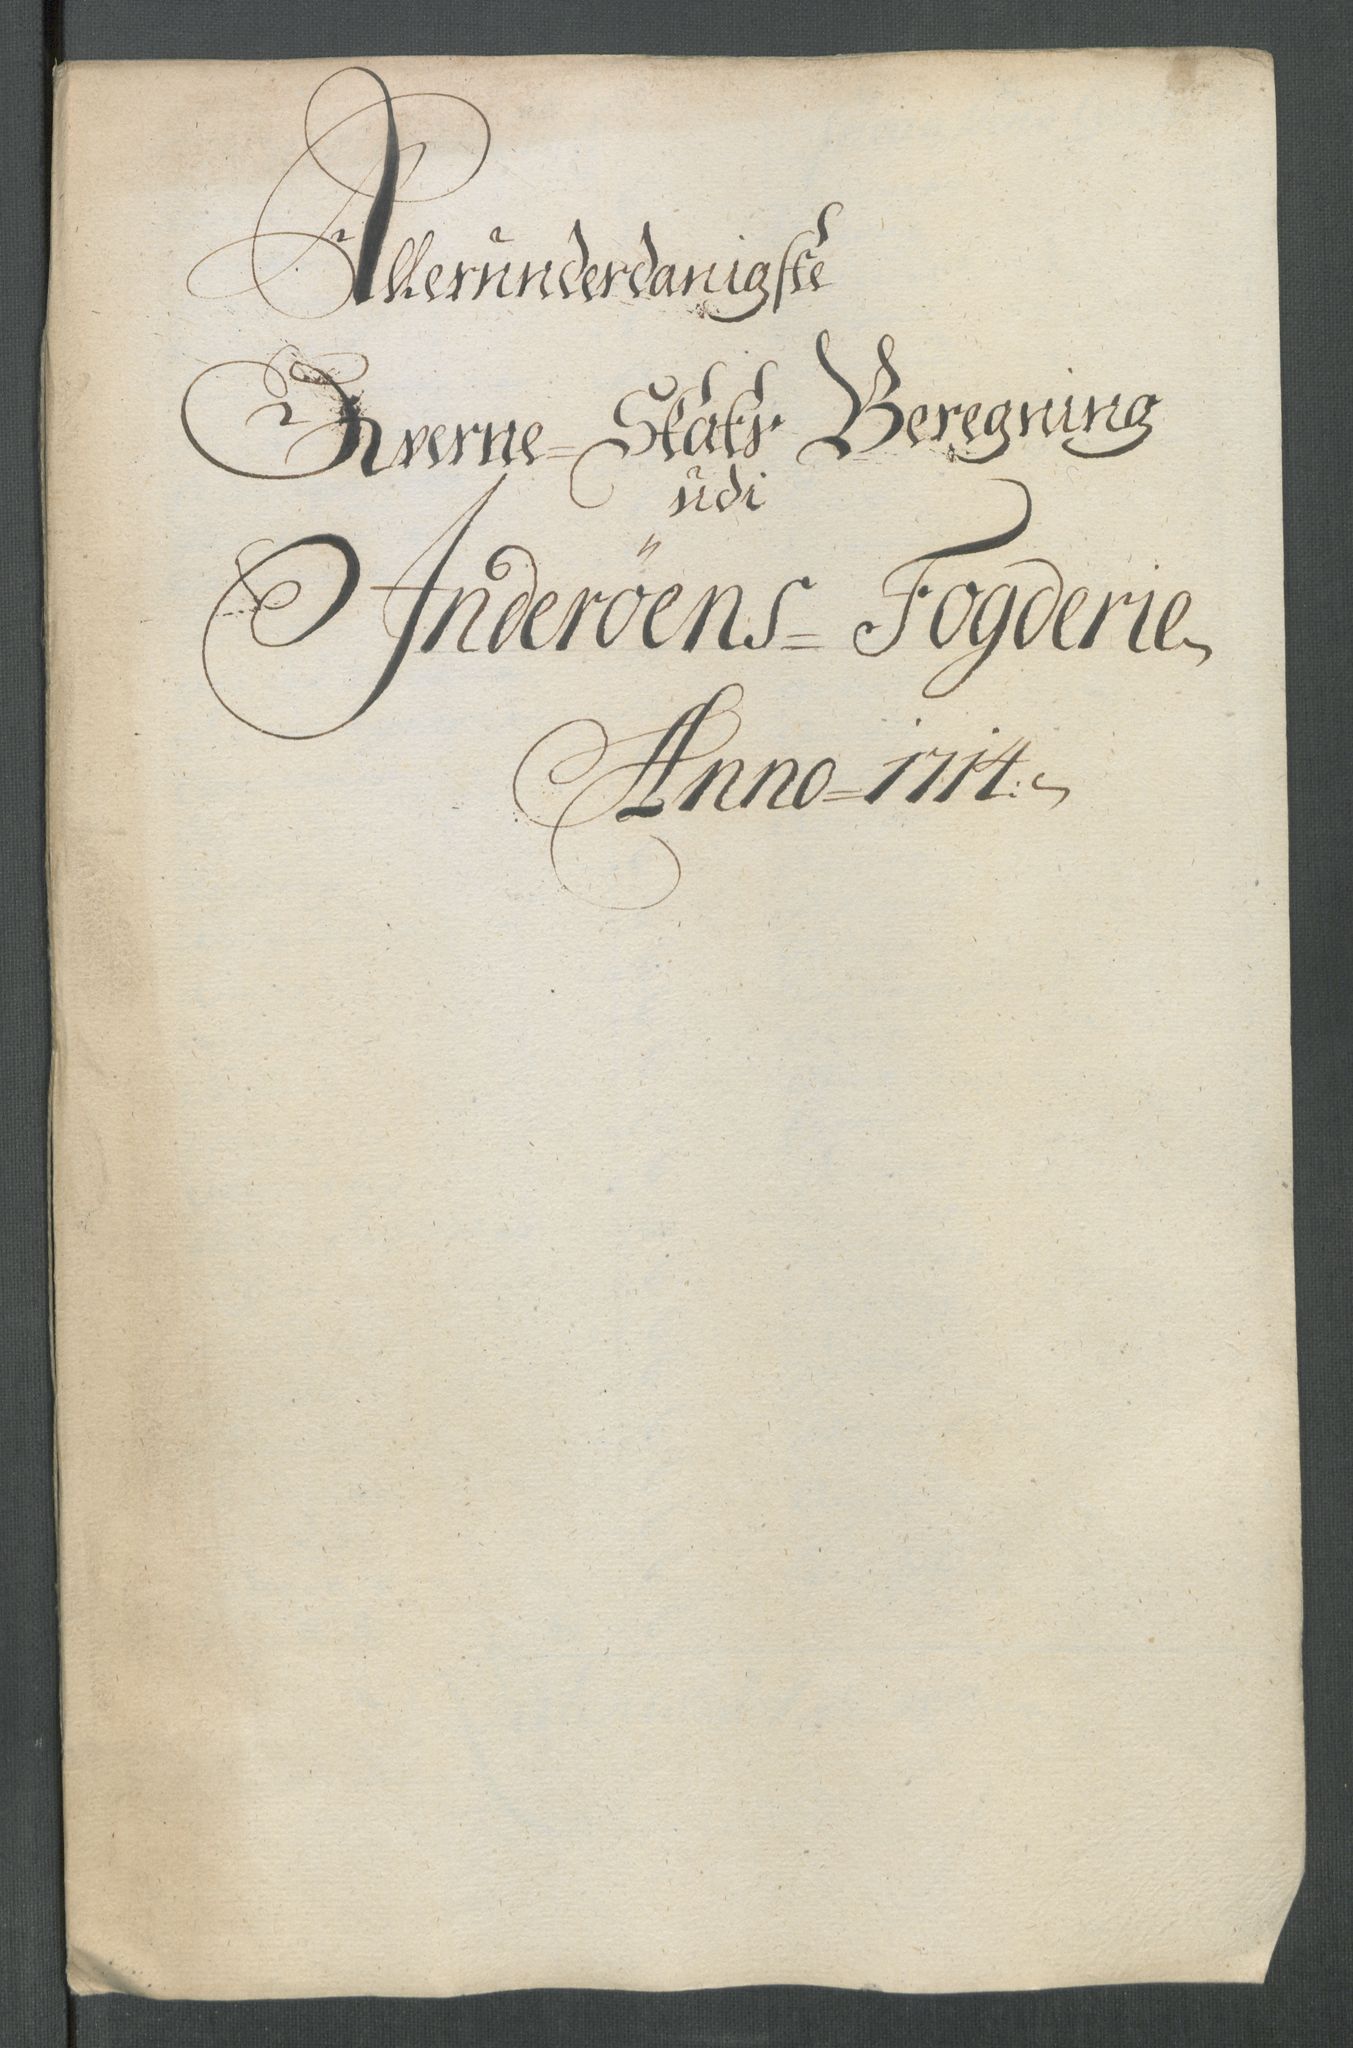 Allerunderdanigste
Qverne= Skats Beregning
udi
Inderöens= Fogderie
Anno= 1714.